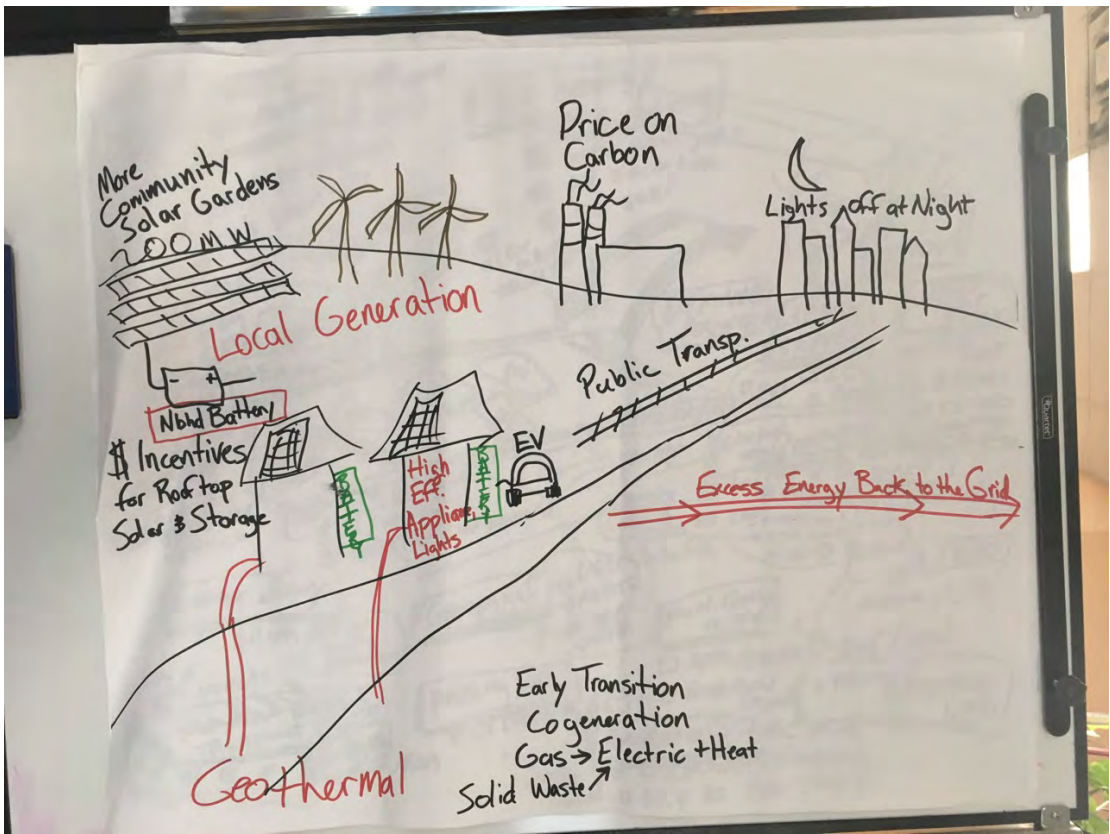 More
Community
Solar Gardens
200 MW
Price on
Carbon
Lights off at Night
Local Generation
Public Transp.
- +
Nbhd Battery
$ Incentives
for Rooftop
Solar & Storage
High
Eff.
Appliance,
Lights
EV
Excess Energy Back to the Grid
Early Transition
Cogeneration
Gas → Electric + Heat
Solid Waste ↗
Geothermal
Quartet